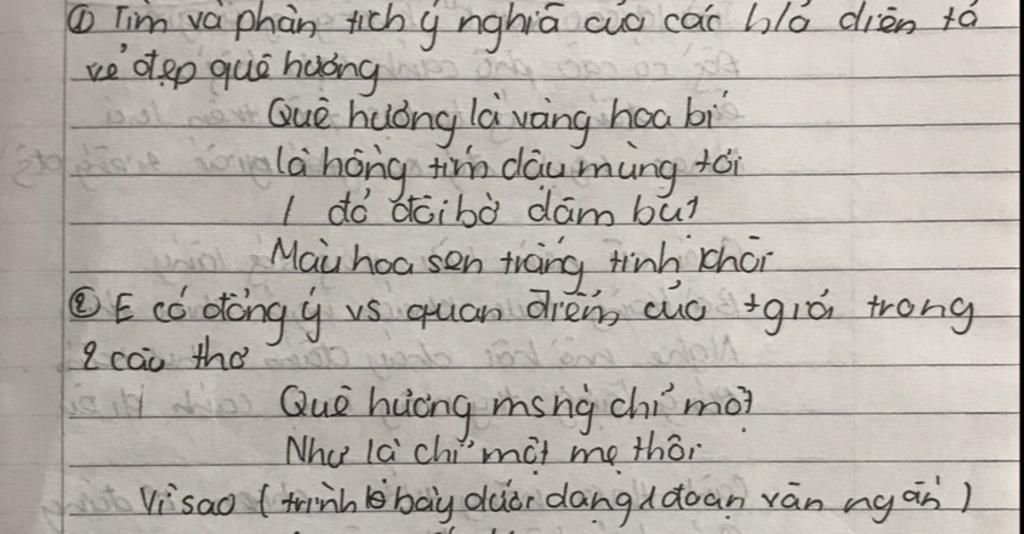 ① Tìm và phân tích ý nghĩa của các h/a diễn tả
vẻ đẹp quê hương
Quê hương là vàng hoa bí
là hồng tím dậu mùng tơi
/ đỏ đôi bờ dâm bụt
Màu hoa sen trắng tinh khôi
② E có đồng ý vs quan điểm của tgiả trong
2 câu thơ
Quê hương mỗi ng chỉ một
Như là chỉ một mẹ thôi
Vì sao ( trình bày dưới dạng 1 đoạn văn ngắn )